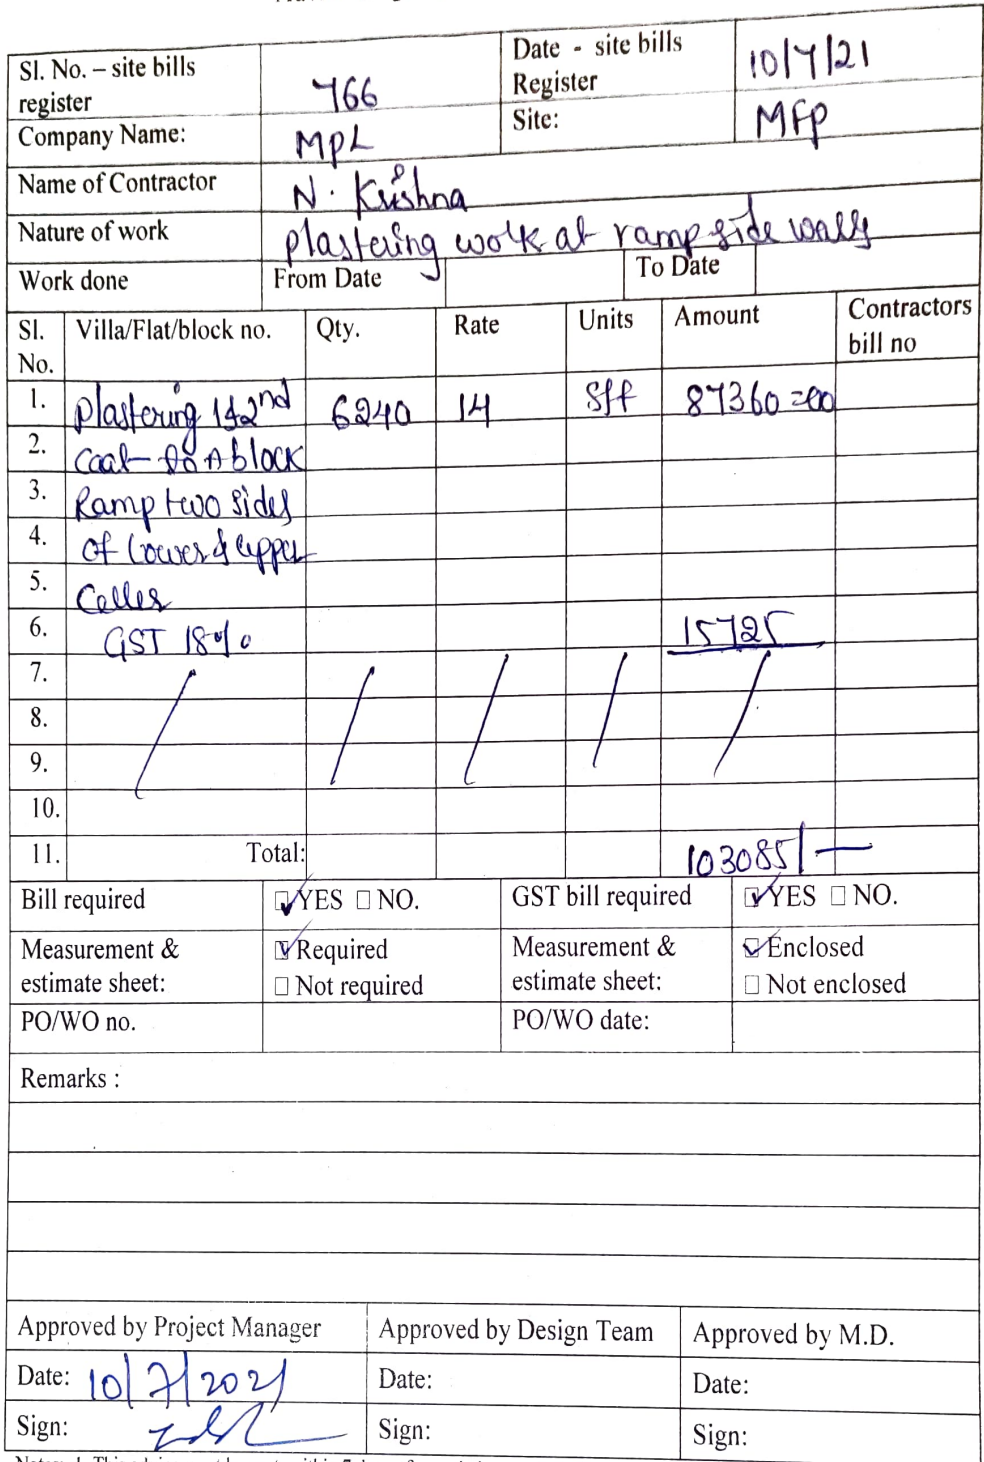 Sl. No. – site bills register 766 Date - site bills Register 10/7/21
Company Name: MPL Site: MFP
Name of Contractor N. Krishna
Nature of work plastering work at ramp side walls
Work done From Date To Date
Sl. No. Villa/Flat/block no. Qty. Rate Units Amount Contractors bill no
1. plastering 1&2nd 6240 14 Sft 87360=00
2. coat A block
3. Ramp two sides
4. of lower & upper
5. Celler
6. GST 18% 15725
7.
8.
9.
10.
11. Total: 103085/-
Bill required YES NO. GST bill required YES NO.
Measurement & estimate sheet: Required Measurement & estimate sheet: Enclosed
Not required Not enclosed
PO/WO no. PO/WO date:
Remarks :
Approved by Project Manager Approved by Design Team Approved by M.D.
Date: 10/7/2021 Date: Date:
Sign: Sign: Sign: